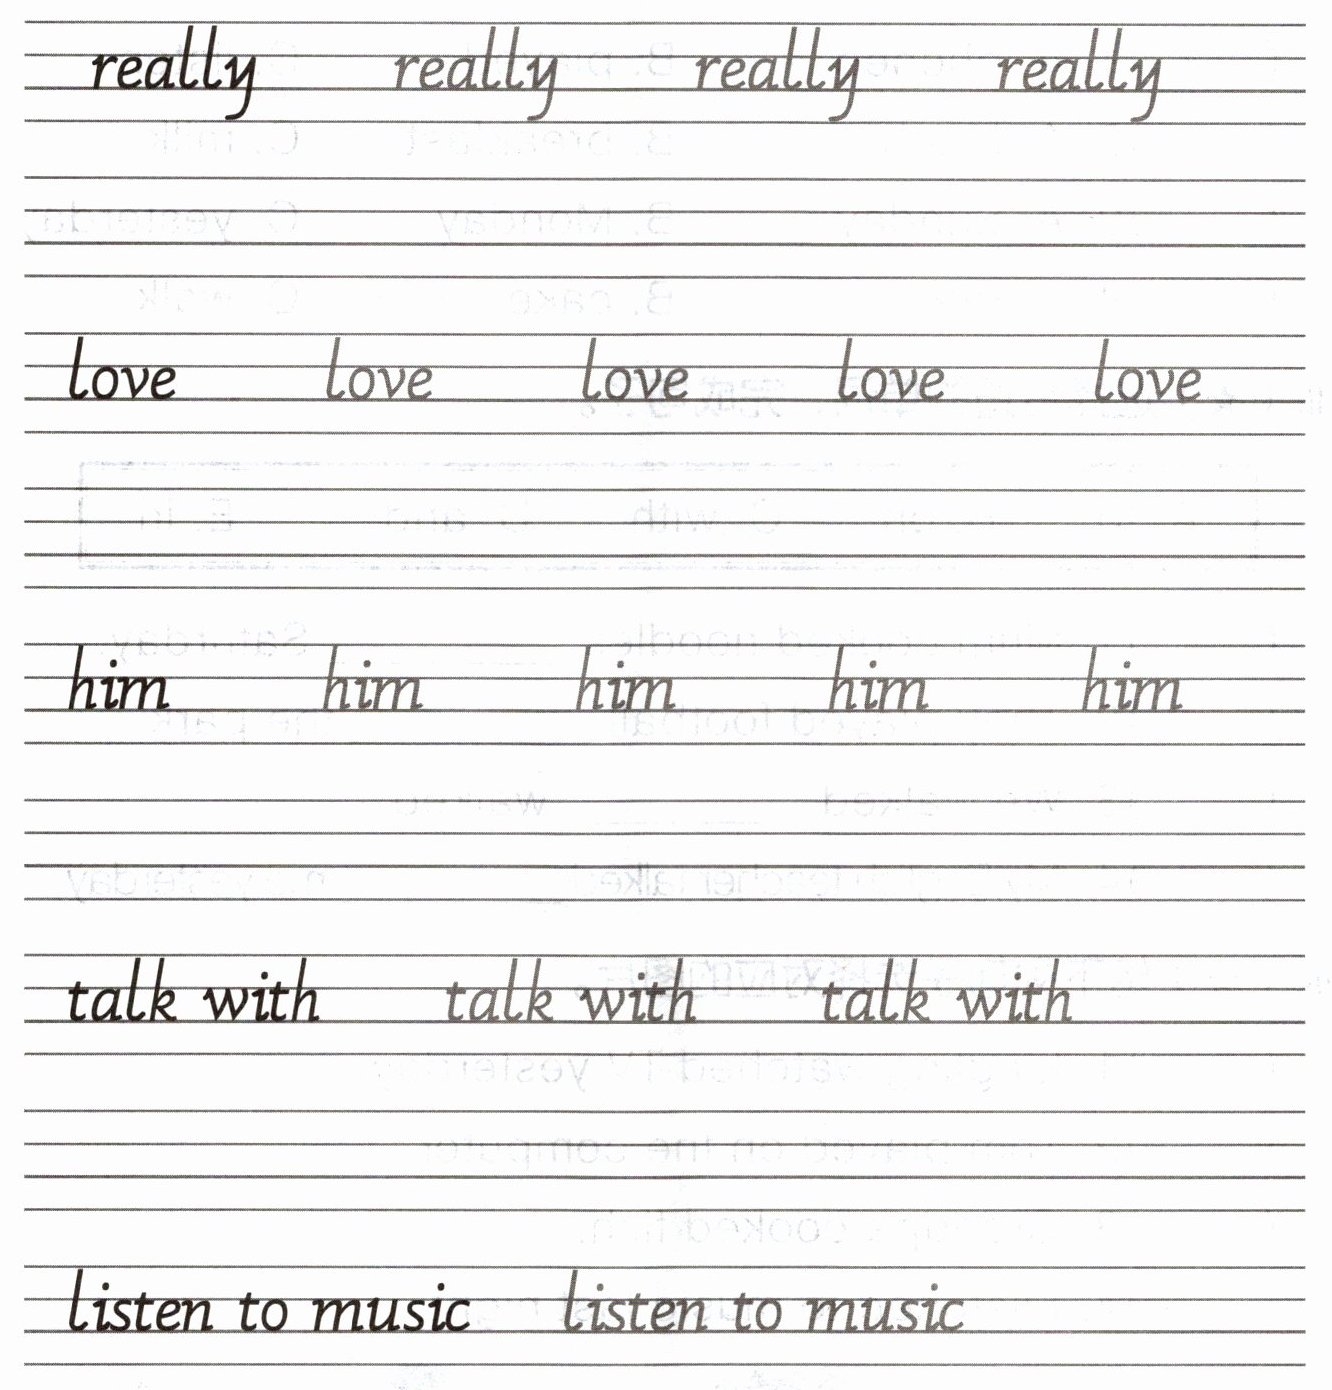 really really really really
love love love love love
him him him him him
talk with talk with talk with
listen to music listen to music